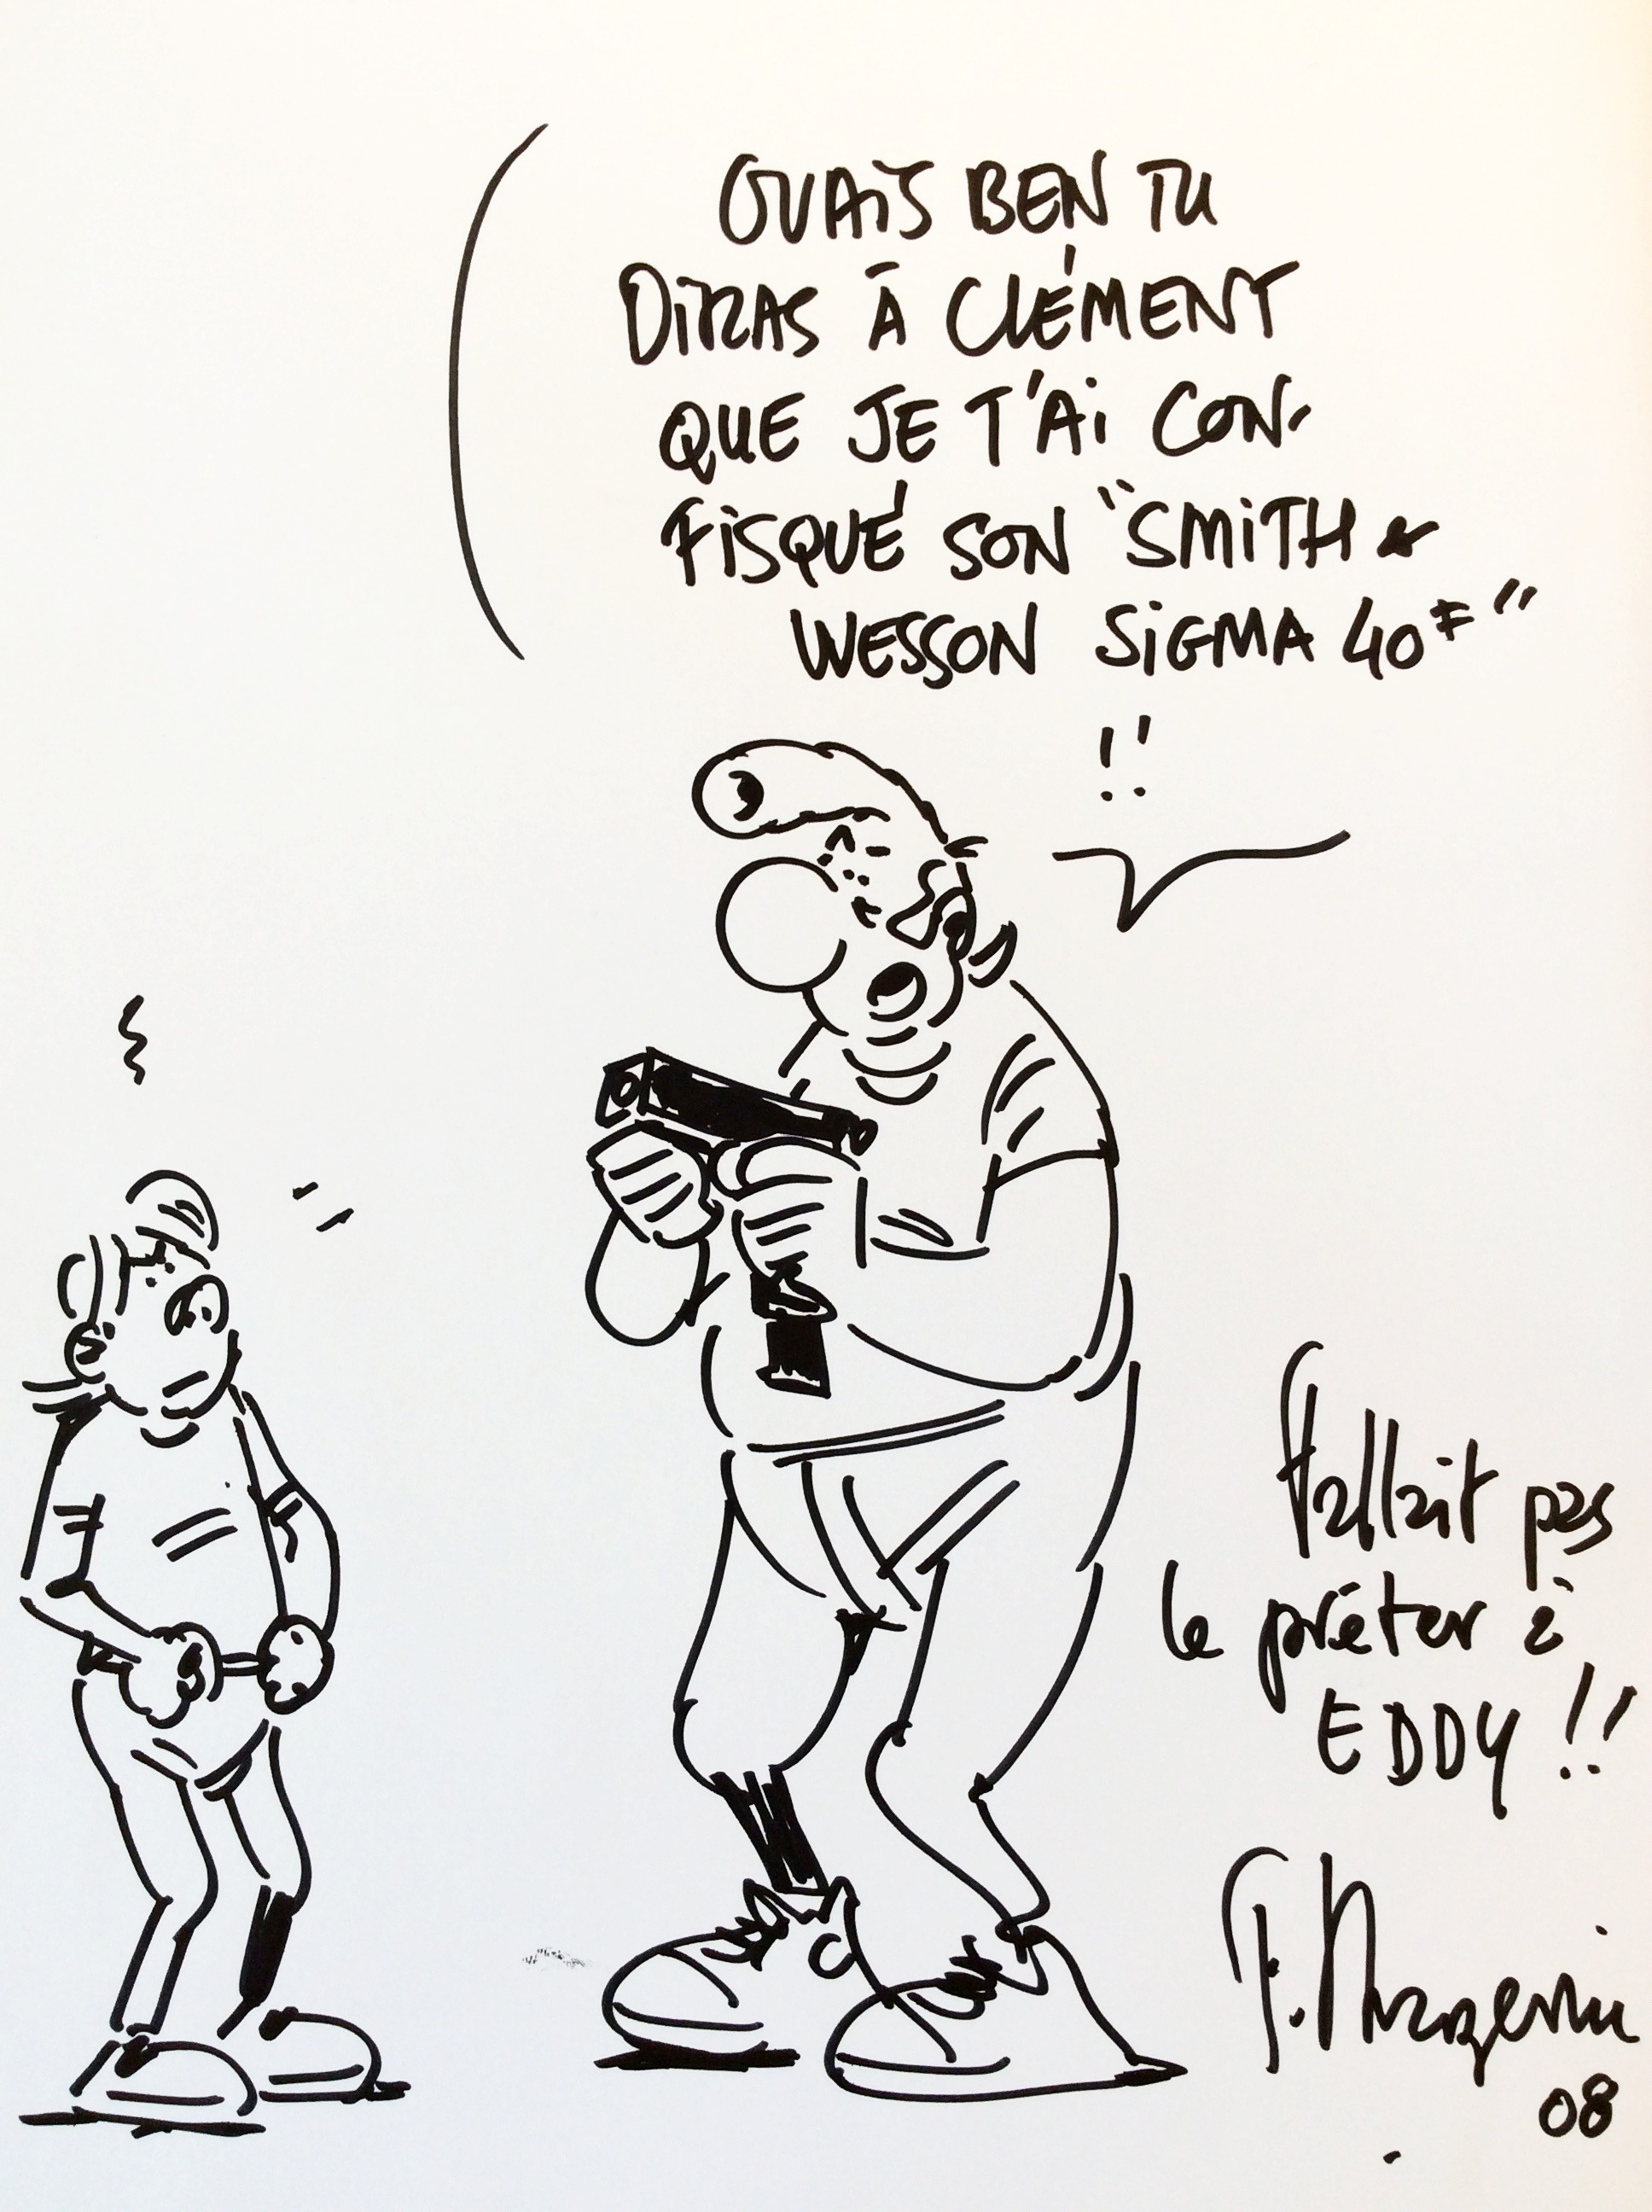 OUAIS BEN TU
DIRAS À CLÉMENT
QUE JE T'AI CON-
FISQUÉ SON "SMITH &
WESSON SIGMA 40F"
!!
Fallait pas
le prêter à
EDDY !!
F. Margerin
08